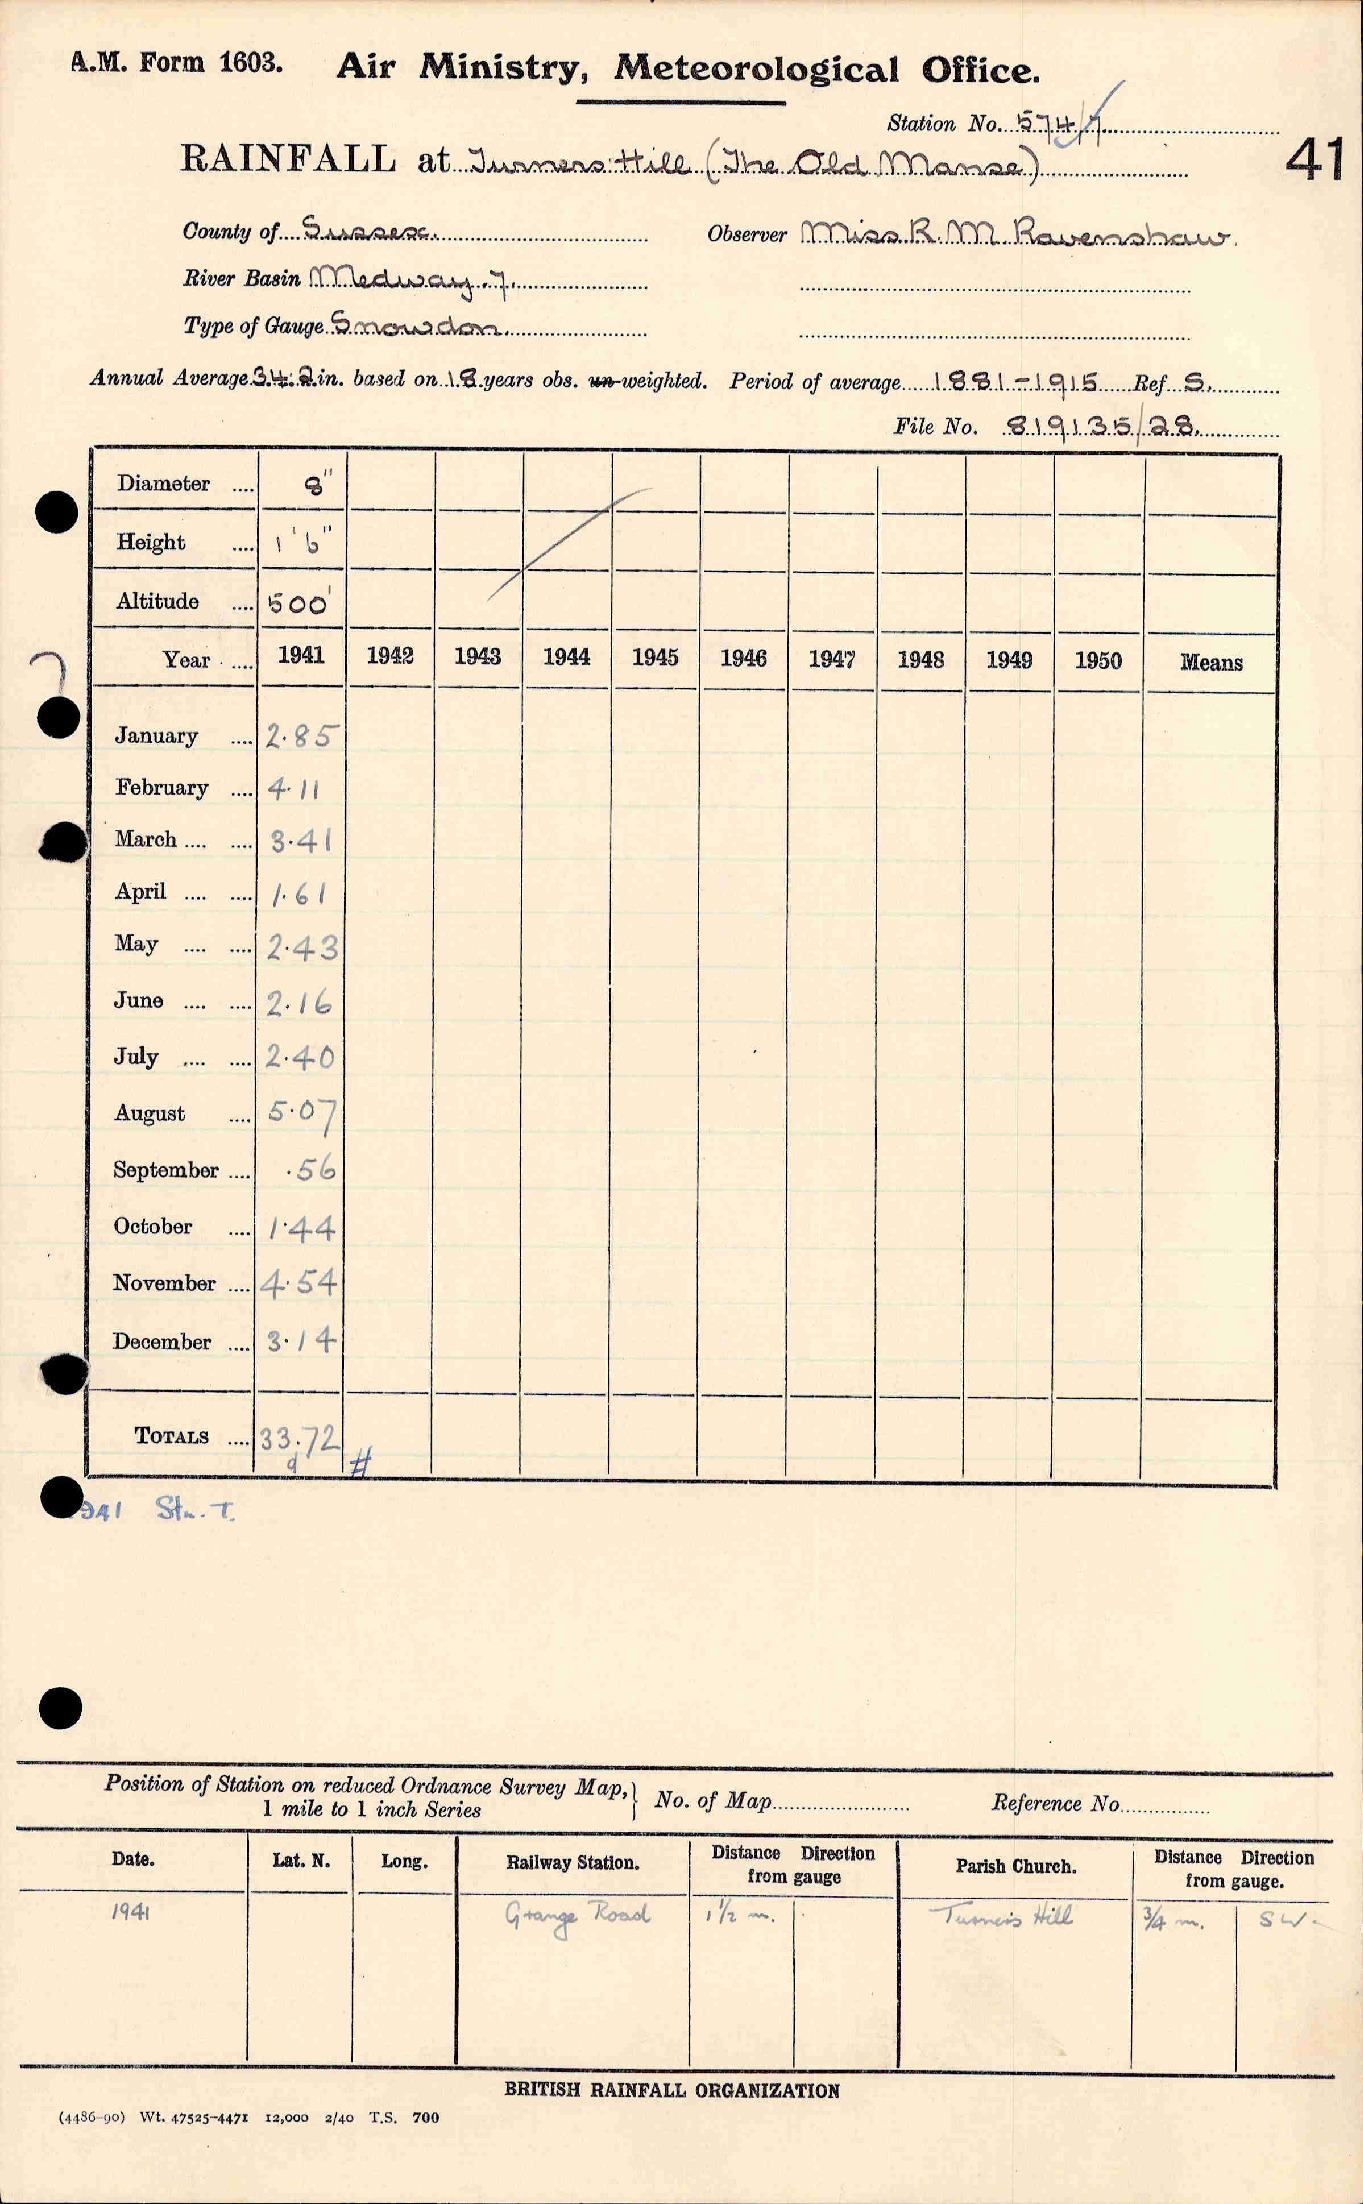 A.M. Form 1603. Air Ministry, Meteorological Office.
Station No. 574/7
41
RAINFALL at Turners Hill (The Old Manse)
County of Sussex. Observer Miss R. M. Ravenshaw.
River Basin Medway. 7.
Type of Gauge Snowdon.
Annual Average 34.2 in. based on 18 years obs. un-weighted. Period of average 1881-1915 Ref S.
File No. 819135/28.
Diameter .... 8"
Height .... 1'6"
Altitude .... 500'
Year .... 1941 1942 1943 1944 1945 1946 1947 1948 1949 1950 Means
January .... 2.85
February .... 4.11
March .... .... 3.41
April .... .... 1.61
May .... .... 2.43
June .... .... 2.16
July .... .... 2.40
August .... 5.07
September .... .56
October .... 1.44
November .... 4.54
December .... 3.14
TOTALS .... 33.72
d #
1941 Stn. T.
Position of Station on reduced Ordnance Survey Map, } No. of Map Reference No.
1 mile to 1 inch Series
Date. Lat. N. Long. Railway Station. Distance Direction from gauge Parish Church. Distance Direction from gauge.
1941 Grange Road 1½ m. Turners Hill ¾ m. SW.
BRITISH RAINFALL ORGANIZATION
(4486-90) Wt. 47525-4471 12,000 2/40 T.S. 700